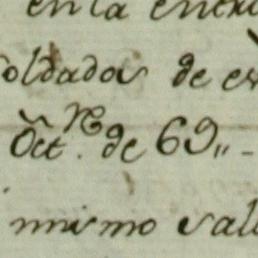 en la entra
soldados de es
Oct.re de 69,, -
mismo sali